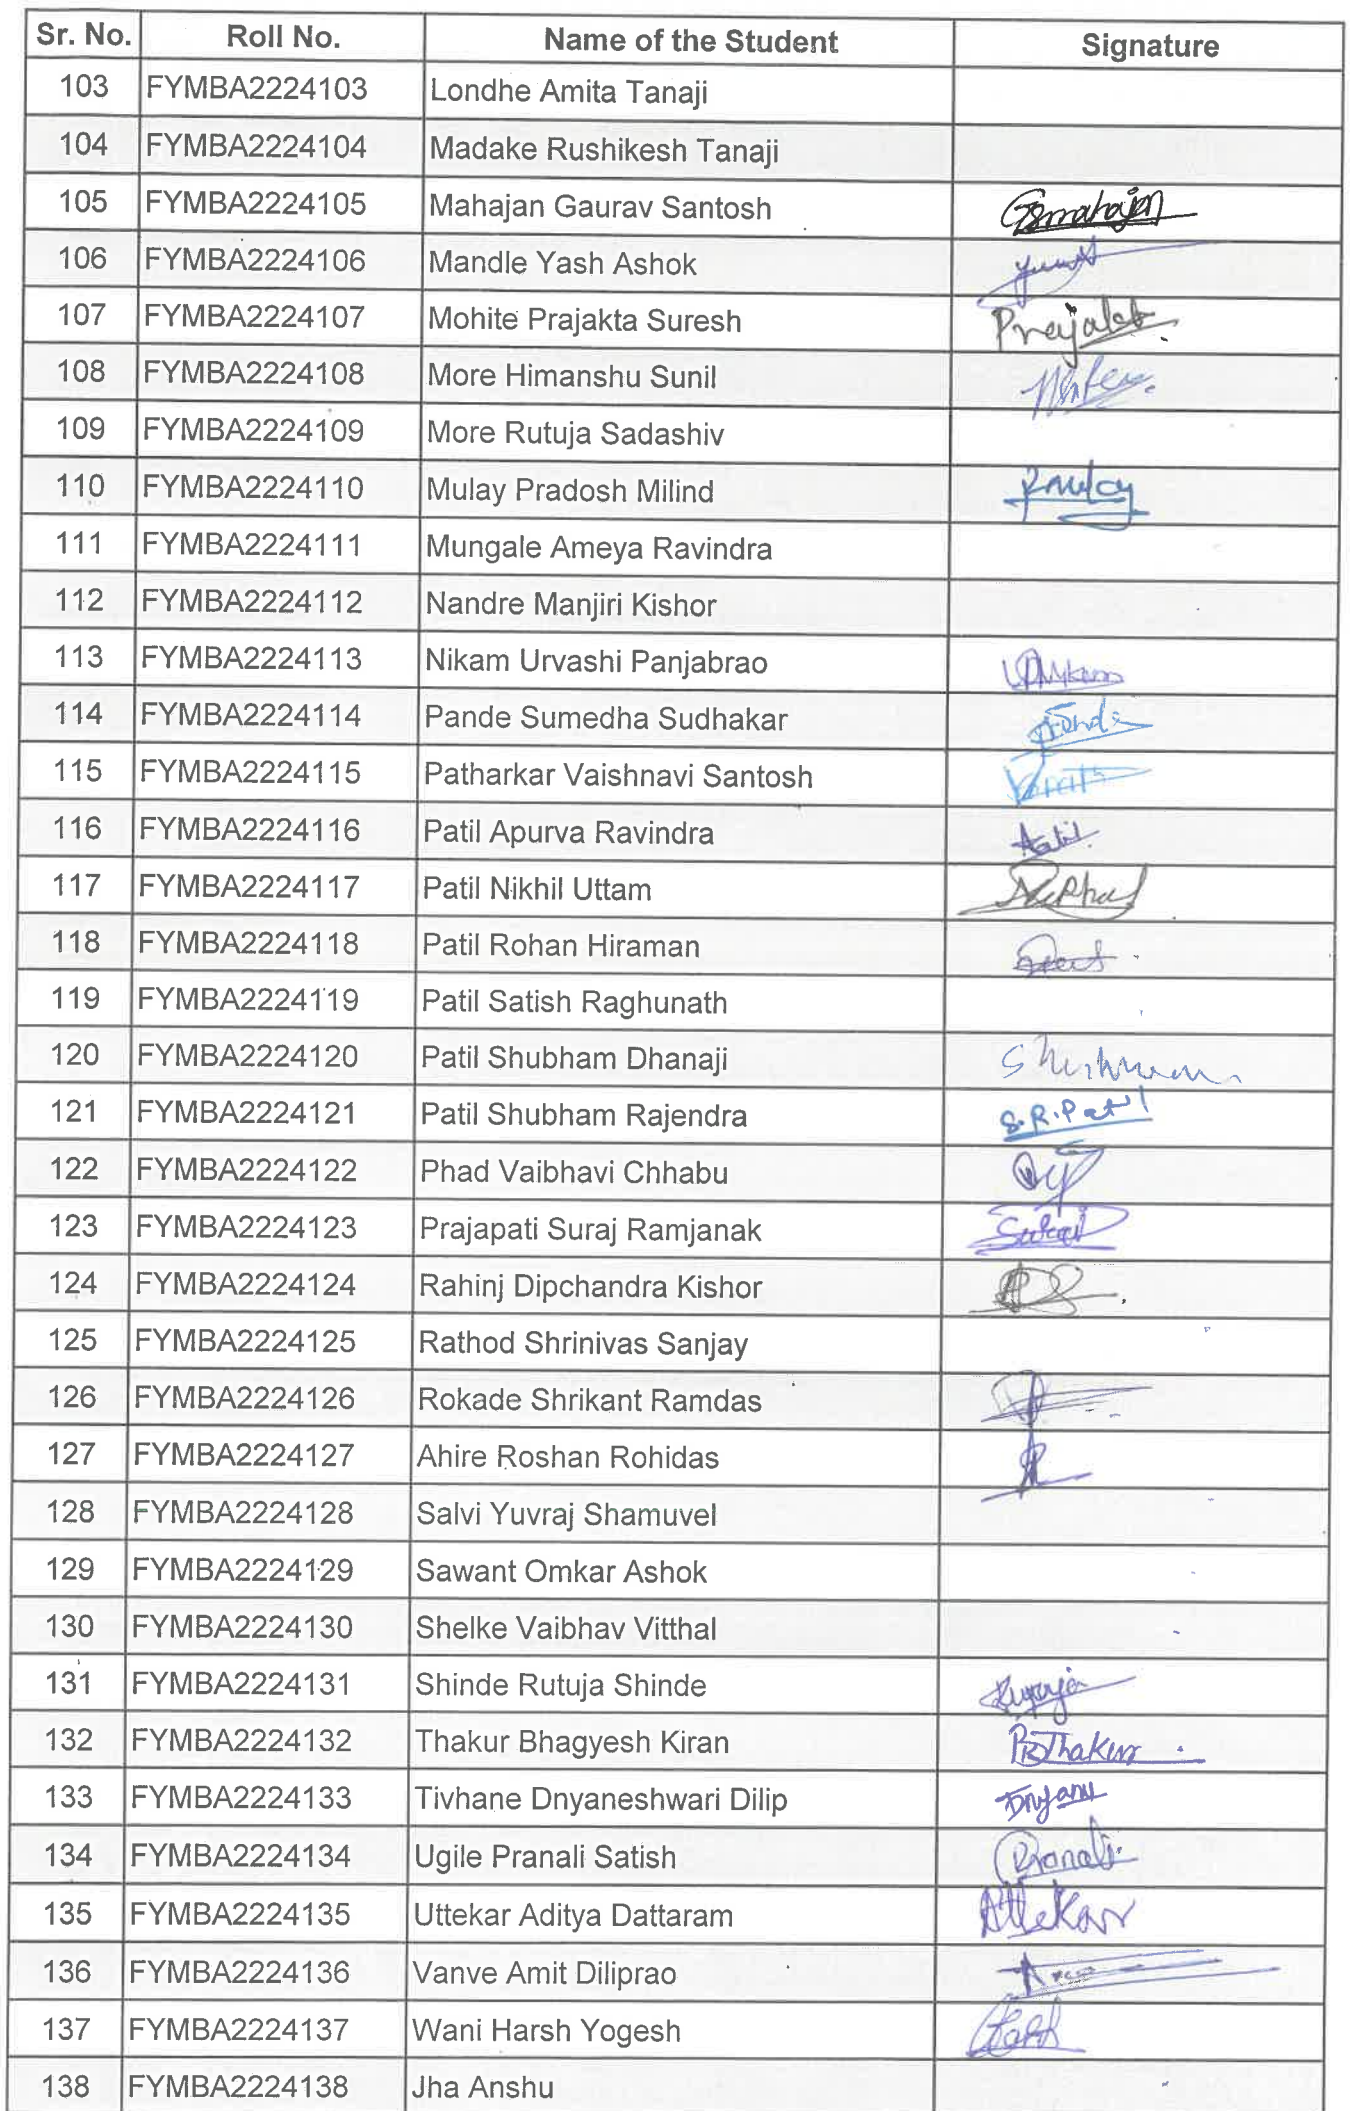 Sr. No. Roll No. Name of the Student Signature
103 FYMBA2224103 Londhe Amita Tanaji
104 FYMBA2224104 Madake Rushikesh Tanaji
105 FYMBA2224105 Mahajan Gaurav Santosh GSmahajan
106 FYMBA2224106 Mandle Yash Ashok
107 FYMBA2224107 Mohite Prajakta Suresh
108 FYMBA2224108 More Himanshu Sunil
109 FYMBA2224109 More Rutuja Sadashiv
110 FYMBA2224110 Mulay Pradosh Milind Pmulay
111 FYMBA2224111 Mungale Ameya Ravindra
112 FYMBA2224112 Nandre Manjiri Kishor
113 FYMBA2224113 Nikam Urvashi Panjabrao
114 FYMBA2224114 Pande Sumedha Sudhakar
115 FYMBA2224115 Patharkar Vaishnavi Santosh
116 FYMBA2224116 Patil Apurva Ravindra
117 FYMBA2224117 Patil Nikhil Uttam
118 FYMBA2224118 Patil Rohan Hiraman
119 FYMBA2224119 Patil Satish Raghunath
120 FYMBA2224120 Patil Shubham Dhanaji
121 FYMBA2224121 Patil Shubham Rajendra S.R.Patil
122 FYMBA2224122 Phad Vaibhavi Chhabu
123 FYMBA2224123 Prajapati Suraj Ramjanak
124 FYMBA2224124 Rahinj Dipchandra Kishor
125 FYMBA2224125 Rathod Shrinivas Sanjay
126 FYMBA2224126 Rokade Shrikant Ramdas
127 FYMBA2224127 Ahire Roshan Rohidas
128 FYMBA2224128 Salvi Yuvraj Shamuvel
129 FYMBA2224129 Sawant Omkar Ashok
130 FYMBA2224130 Shelke Vaibhav Vitthal
131 FYMBA2224131 Shinde Rutuja Shinde
132 FYMBA2224132 Thakur Bhagyesh Kiran BThakur
133 FYMBA2224133 Tivhane Dnyaneshwari Dilip
134 FYMBA2224134 Ugile Pranali Satish Pranali
135 FYMBA2224135 Uttekar Aditya Dattaram
136 FYMBA2224136 Vanve Amit Diliprao
137 FYMBA2224137 Wani Harsh Yogesh
138 FYMBA2224138 Jha Anshu